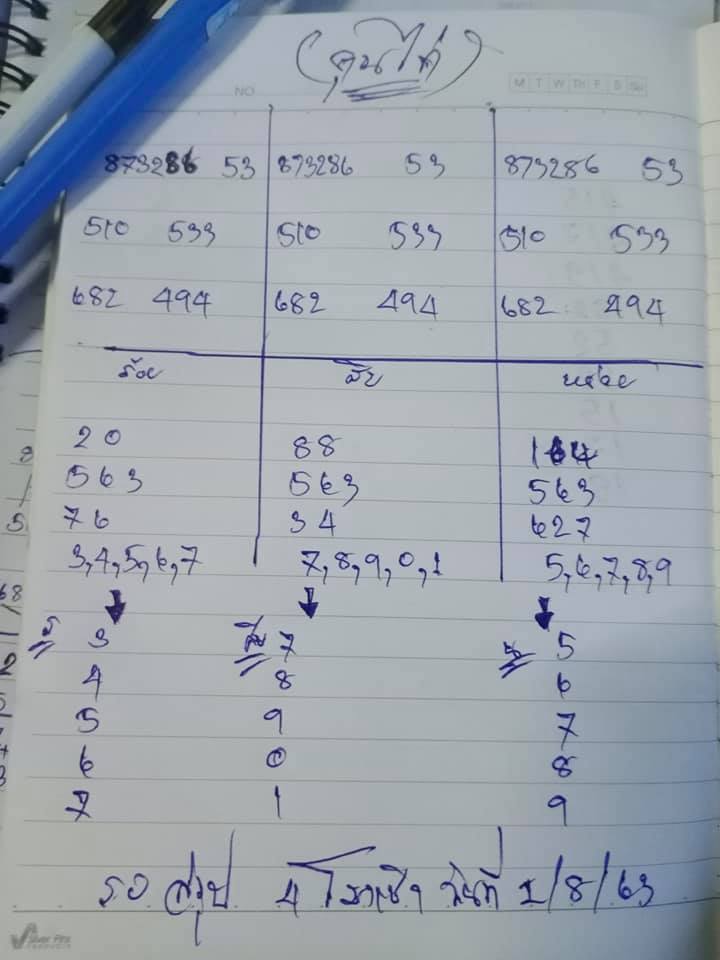 NO
M T W TH F S SU
873286 53 873286 53 873286 53
510 533 510 533 510 533
682 494 682 494 682 494
ร้อย สิบ หน่วย
20 88 164
563 563 563
76 34 627
3,4,5,6,7 7,8,9,0,1 5,6,7,8,9
ร 3 สิบ 7 5
4 8 6
5 9 7
6 0 8
7 1 9
รอ สรุป 4 โมงเช้า วันที่ 1/8/63